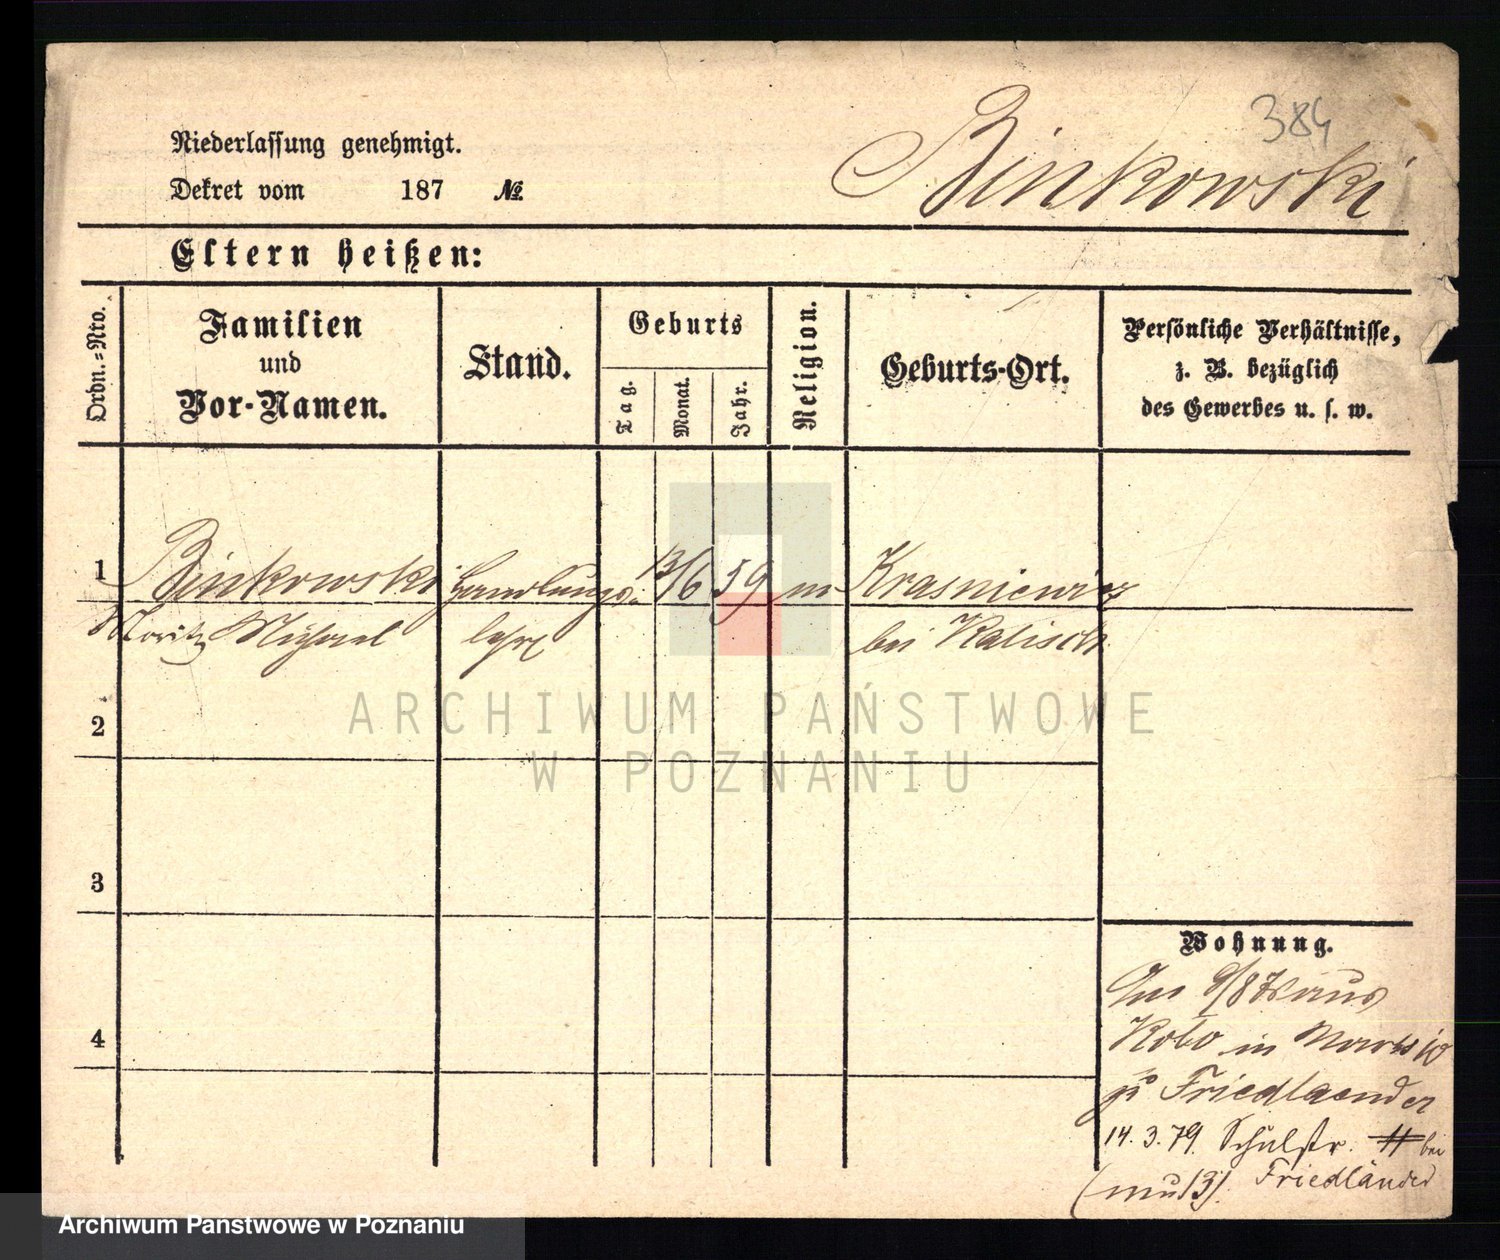 384
Binkowski
Niederlassung genehmigt.
Dekret vom 187 №
Eltern heißen:
Ordn.=Nro.
Familien
und
Vor-Namen.
Stand.
Geburts
Tag.
Monat.
Jahr.
Religion.
Geburts-Ort.
Persönliche Verhältnisse,
z. B. bezüglich
des Gewerbes u. s. w.
1 Binkowski Handlungs- 13/6 59 m Krasniewicz
Moritz Michael lehrl bei Kalisch
2
3
4
Wohnung.
Am 9/8 78 aus
in
zu Friedlaender
14. 3. 79. Schulstr. 11 bei
Friedländer
ARCHIWUM PAŃSTWOWE
W POZNANIU
Archiwum Państwowe w Poznaniu